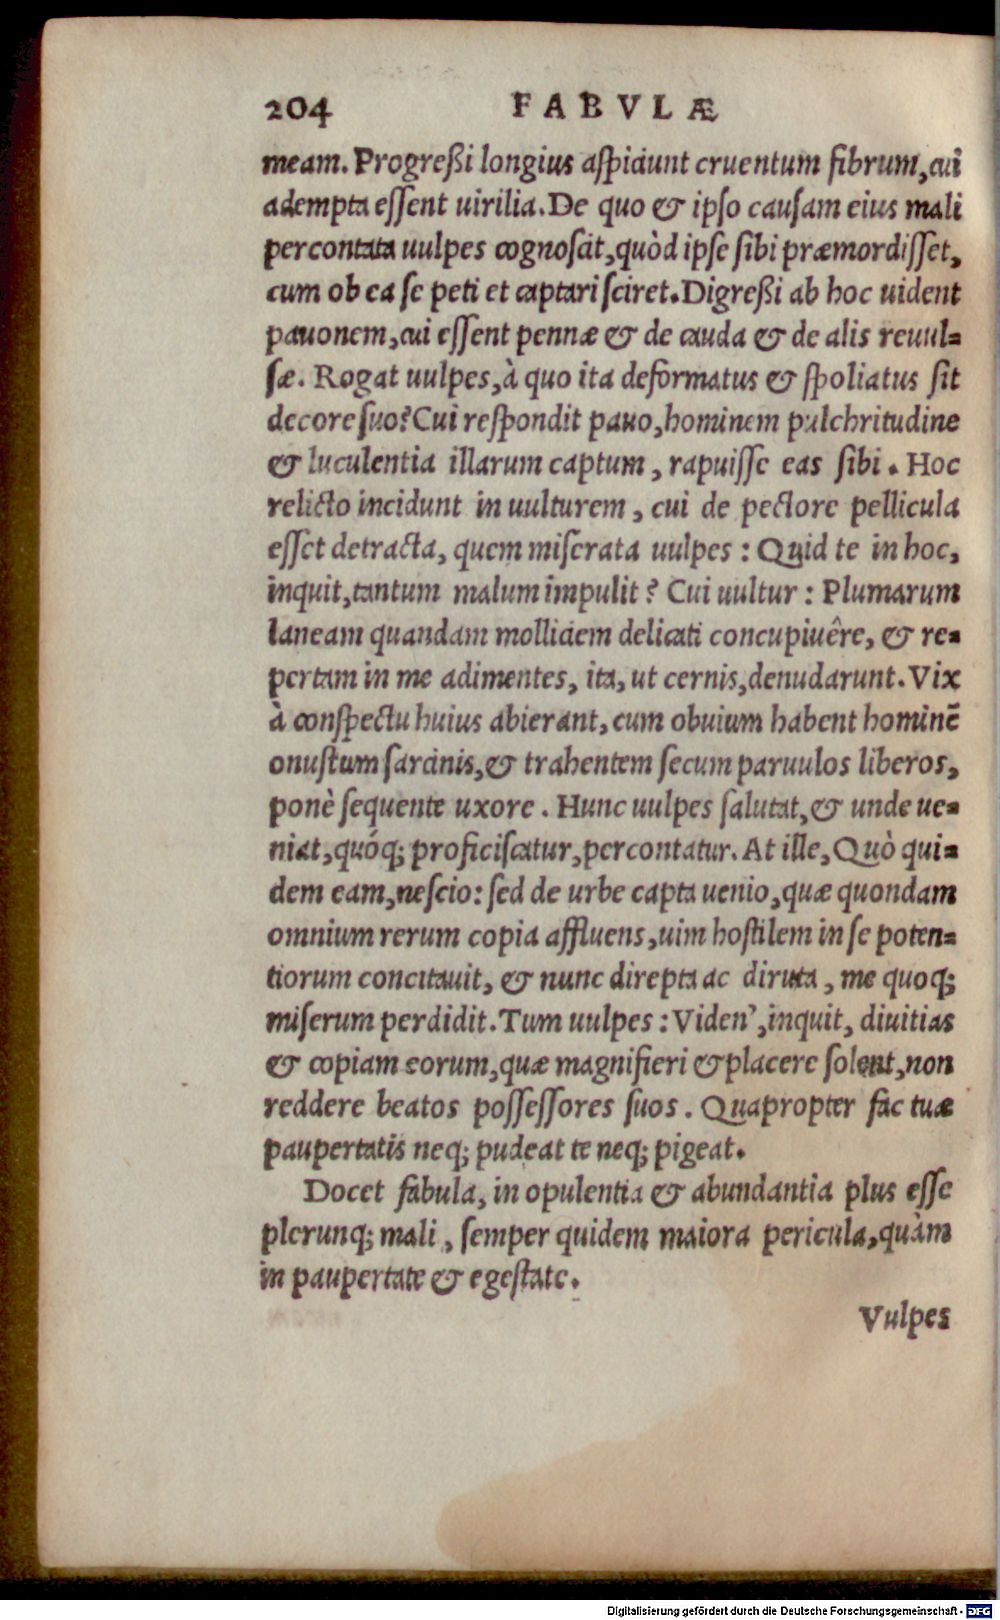 204 FABVLÆ
meam. Progreßi longius aspiciunt cruentum fibrum, cui
adempta essent uirilia. De quo & ipso causam eius mali
percontata uulpes cognoscit, quòd ipse sibi præmordisset,
cum ob ea se peti et captari sciret. Digreßi ab hoc uident
pauonem, cui essent pennæ & de cauda & de alis reuul=
sæ. Rogat uulpes, à quo ita deformatus & spoliatus sit
decore suo? Cui respondit pauo, hominem pulchritudine
& luculentia illarum captum, rapuisse eas sibi. Hoc
relicto incidunt in uulturem, cui de pectore pellicula
esset detracta, quem miserata uulpes: Quid te in hoc,
inquit, tantum malum impulit? Cui uultur: Plumarum
laneam quandam molliciem delicati concupiuêre, & re=
pertam in me adimentes, ita, ut cernis, denudarunt. Vix
à conspectu huius abierant, cum obuium habent hominē
onustum sarcinis, & trahentem secum paruulos liberos,
ponè sequente uxore. Hunc uulpes salutat, & unde ue=
niat, quóq; proficiscatur, percontatur. At ille, Quò qui=
dem eam, nescio: sed de urbe capta uenio, quæ quondam
omnium rerum copia affluens, uim hostilem in se poten=
tiorum concitauit, & nunc direpta ac diruta, me quoq;
miserum perdidit. Tum uulpes: Viden', inquit, diuitias
& copiam eorum, quæ magnifieri & placere solent, non
reddere beatos possessores suos. Quapropter fac tuæ
paupertatis neq; pudeat te neq; pigeat.
Docet fabula, in opulentia & abundantia plus esse
plerunq; mali, semper quidem maiora pericula, quàm
in paupertate & egestate.
Vulpes
Digitalisierung gefördert durch die Deutsche Forschungsgemeinschaft - DFG